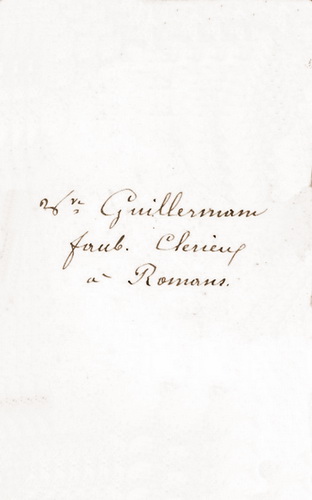 Vve Guillermam
faub. Clerieux
à Romans.